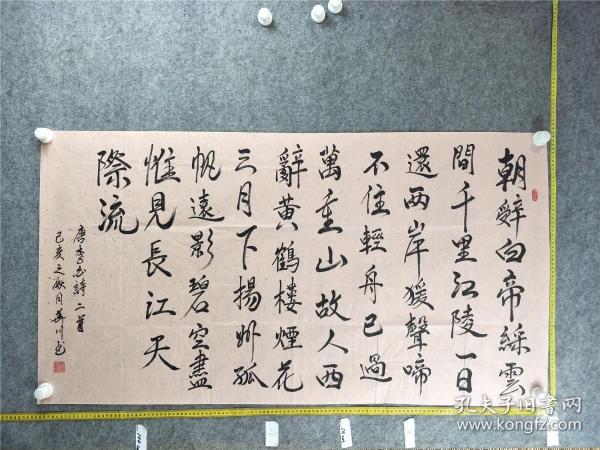 朝辭白帝綵雲
間千里江陵一日
還兩岸猨聲啼
不住輕舟已過
萬重山故人西
辭黃鶴樓煙花
三月下揚州孤
帆遠影碧空盡
惟見長江天
際流
唐李白詩二首
己亥之秋月 川書
孔夫子旧书网
www.kongfz.com